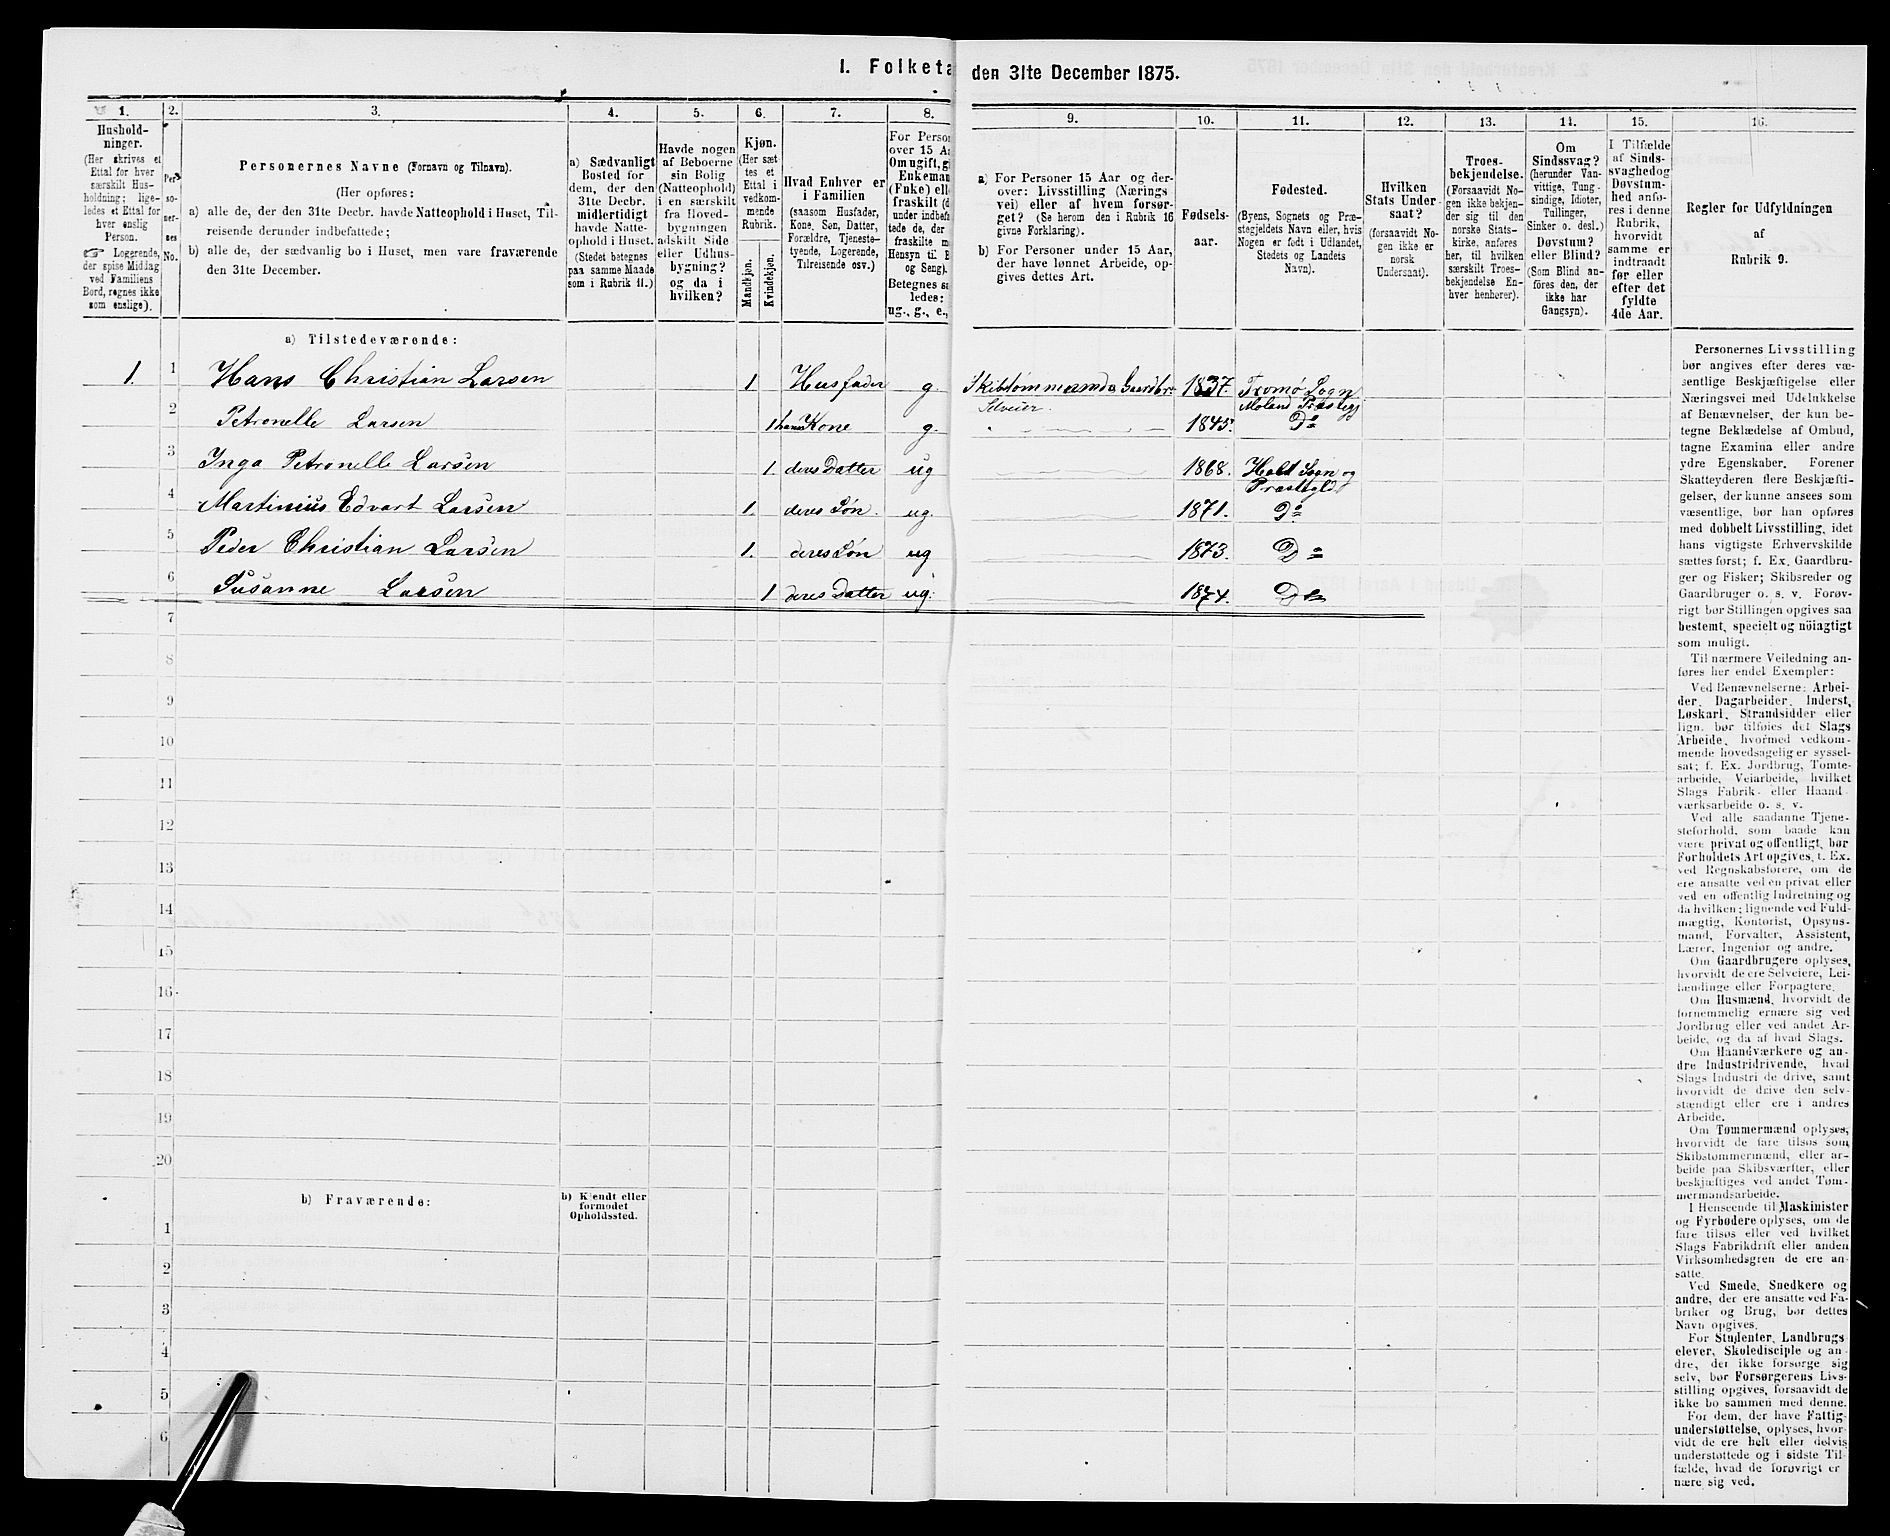 I. Folketa
den 31te December 1875.
1.
Hushold-
ninger.
(Her skrives et
Ettal for hver
særskilt Hus-
holdning; lige-
ledes et Ettal for
hver enslig
Person.
☞ Logerende,
der spise Middag
ved Familiens
Bord, regnes ikke
som enslige).
2.
Per-
so-
ner-
nes
No.
3.
Personernes Navne (Fornavn og Tilnavn).
(Her opføres:
a) alle de, der den 31te Decbr. havde Natteophold i Huset, Til-
reisende derunder indbefattede;
b) alle de, der sædvanlig bo i Huset, men vare fraværende
den 31te December.
4.
a) Sædvanligt
Bosted for
dem, der den
31te Decbr.
midlertidigt
havde Natte-
ophold i Huset.
(Stedet betegnes
paa samme Maade
som i Rubrik 11.)
5.
Havde nogen
af Beboerne
sin Bolig
(Natteophold)
i en særskilt
fra Hoved-
bygningen
adskilt Side-
eller Udhus-
bygning?
og da i
hvilken?
6.
Kjøn.
(Her sæt-
tes et
Ettal i
vedkom-
mende
Rubrik.
Mandkjøn.
Kvindekjøn.
7.
Hvad Enhver er
i Familien
(saasom Husfader,
Kone, Søn, Datter,
Forældre, Tjeneste-
tyende, Logerende,
Tilreisende osv.)
8.
For Person
over 15 A
Om ugift, g
Enkemar
(Fnke) elle
fraskilt (d
under indbefa
tede de, der
fraskilte m
Hensyn til B
og Seng).
Betegnes sa
ledes:
ug., g., e.,
9.
a) For Personer 15 Aar og der-
over: Livsstilling (Nærings-
vei) eller af hvem forsør-
get? (Se herom den i Rubrik 16
givne Forklaring).
b) For Personer under 15 Aar,
der have lønnet Arbeide, op-
gives dettes Art.
10.
Fødsels-
aar.
11.
Fødested.
(Byens, Sognets og Præ-
stegjeldets Navn eller, hvis
Nogen er født i Udlandet,
Stedets og Landets
Navn).
12.
Hvilken
Stats Under-
saat?
(forsaavidt No-
gen ikke er
norsk
Undersaat).
13.
Troes-
bekjendelse.
(Forsaavidt No-
gen ikke bekjen-
der sig til den
norske Stats-
kirke, anføres
her, til hvilken
særskilt Troes-
bekjendelse En-
hver henhører).
14.
Om
Sindssvag?
(herunder Van-
vittige, Tung-
sindige, Idioter,
Tullinger,
Sinker o. desl.)
Døvstum?
eller Blind?
(Som Blind an-
føres den, der
ikke har
Gangsyn).
15.
I Tilfælde
af Sinds-
svaghed og
Døvstum-
hed anfø-
res i denne
Rubrik,
hvorvidt
samme er
indtraadt
før eller
efter det
fyldte
4de Aar.
16.
Regler for Udfyldningen
af
Rubrik 9.
a) Tilstedeværende:
1. 1 Hans Christian Larsen 1 Husfader g. Skibstømmermd & Gaardbr. 1837. Tromø Sogn
Selveier. Moland Præstegj
2 Petronelle Larsen 1 hans Kone g. 1845. Do
3 Inga Petronelle Larsen 1. deres Datter ug 1868. Holt Sogn og
Præstegld
4 Martinius Edvart Larsen 1. deres Søn. ug. 1871. Do
5 Peder Christian Larsen 1. deres Søn ug 1873. Do
6 Susanne Larsen 1 deres Datter ug. 1874. Do
7
8
9
10
11
12
13
14
15
16
17
18
19
20
b) Fraværende:
b) Kjendt eller
formodet
Opholdssted.
1
2
3
4
5
6
Personernes Livsstilling
bør angives efter deres væ-
sentlige Beskjæftigelse eller
Næringsvei med Udelukkelse
af Benævnelser, der kun be-
tegne Beklædelse af Ombud,
tagne Examina eller andre
ydre Egenskaber. Forener
Skatteyderen flere Beskjæfti-
gelser, der kunne ansees som
væsentlige, bør han opføres
med dobbelt Livsstilling, idet
hans vigtigste Erhvervskilde
sættes først; f. Ex. Gaardbru-
ger og Fisker; Skibsreder og
Gaardbruger o. s. v. Forøv-
rigt bør Stillingen opgives saa
bestemt, specielt og nöiagtigt
som muligt.
Til nærmere Veiledning an-
føres her endel Exempler:
Ved Benævnelserne: Arbei-
der, Dagarbeider, Inderst,
Løskarl, Strandsidder eller
lign. bør tilføies det Slags
Arbeide, hvormed vedkom-
mende hovedsagelig er syssel-
sat; f. Ex. Jordbrug, Tomte-
arbeide, Veiarbeide, hvilket
Slags Fabrik- eller Haand-
værksarbeide o. s. v.
Ved alle saadanne Tjene-
steforhold, som baade kan
være privat og offentligt, bør
Forholdets Art opgives, t. Ex.
ved Regnskabsførere, om de
ere ansatte ved en privat eller
ved en offentlig Indretning og
da hvilken; lignende ved Fuld-
mægtig, Kontorist, Opsyns-
mand, Forvalter, Assistent,
Lærer, Ingeniør og andre.
Om Gaardbrugere oplyses,
hvorvidt de ere Selveiere, Lei-
lændinge eller Forpagtere.
Om Husmænd, hvorvidt de
fornemmelig ernære sig ved
Jordbrug eller ved andet Ar-
beide, og da af hvad Slags.
Om Haandværkere og an-
dre Industridrivende, hvad
Slags Industri de drive, samt
hvorvidt de drive den selv-
stændigt eller ere i andres
Arbeide.
Om Tømmermænd oplyses,
hvorvidt de fare tilsøs som
Skibstømmermænd, eller ar-
beide paa Skibsværfter, eller
beskjæftiges ved andet Tøm-
mermandsarbeide.
I Henseende til Maskinister
og Fyrbødere oplyses, om de
fare tilsøs eller ved hvilket
Slags Fabrikdrift eller anden
Virksomhedsgren de ere an-
satte.
Ved Smede, Snedkere og
andre, der ere ansatte ved Fa-
briker og Brug, bør dettes
Navn opgives.
For Studenter, Landbrugs-
elever, Skoledisciple og an-
dre, der ikke forsørge sig
selv, bør Forsørgerens Livs-
stilling opgives, forsaavidt de
ikke bo sammen med denne.
For dem, der have Fattig-
understøttelse, oplyses, hvor-
vidt de ere helt eller delvis
understøttede og i sidste Til-
fælde, hvad de forøvrigt er-
nære sig ved.